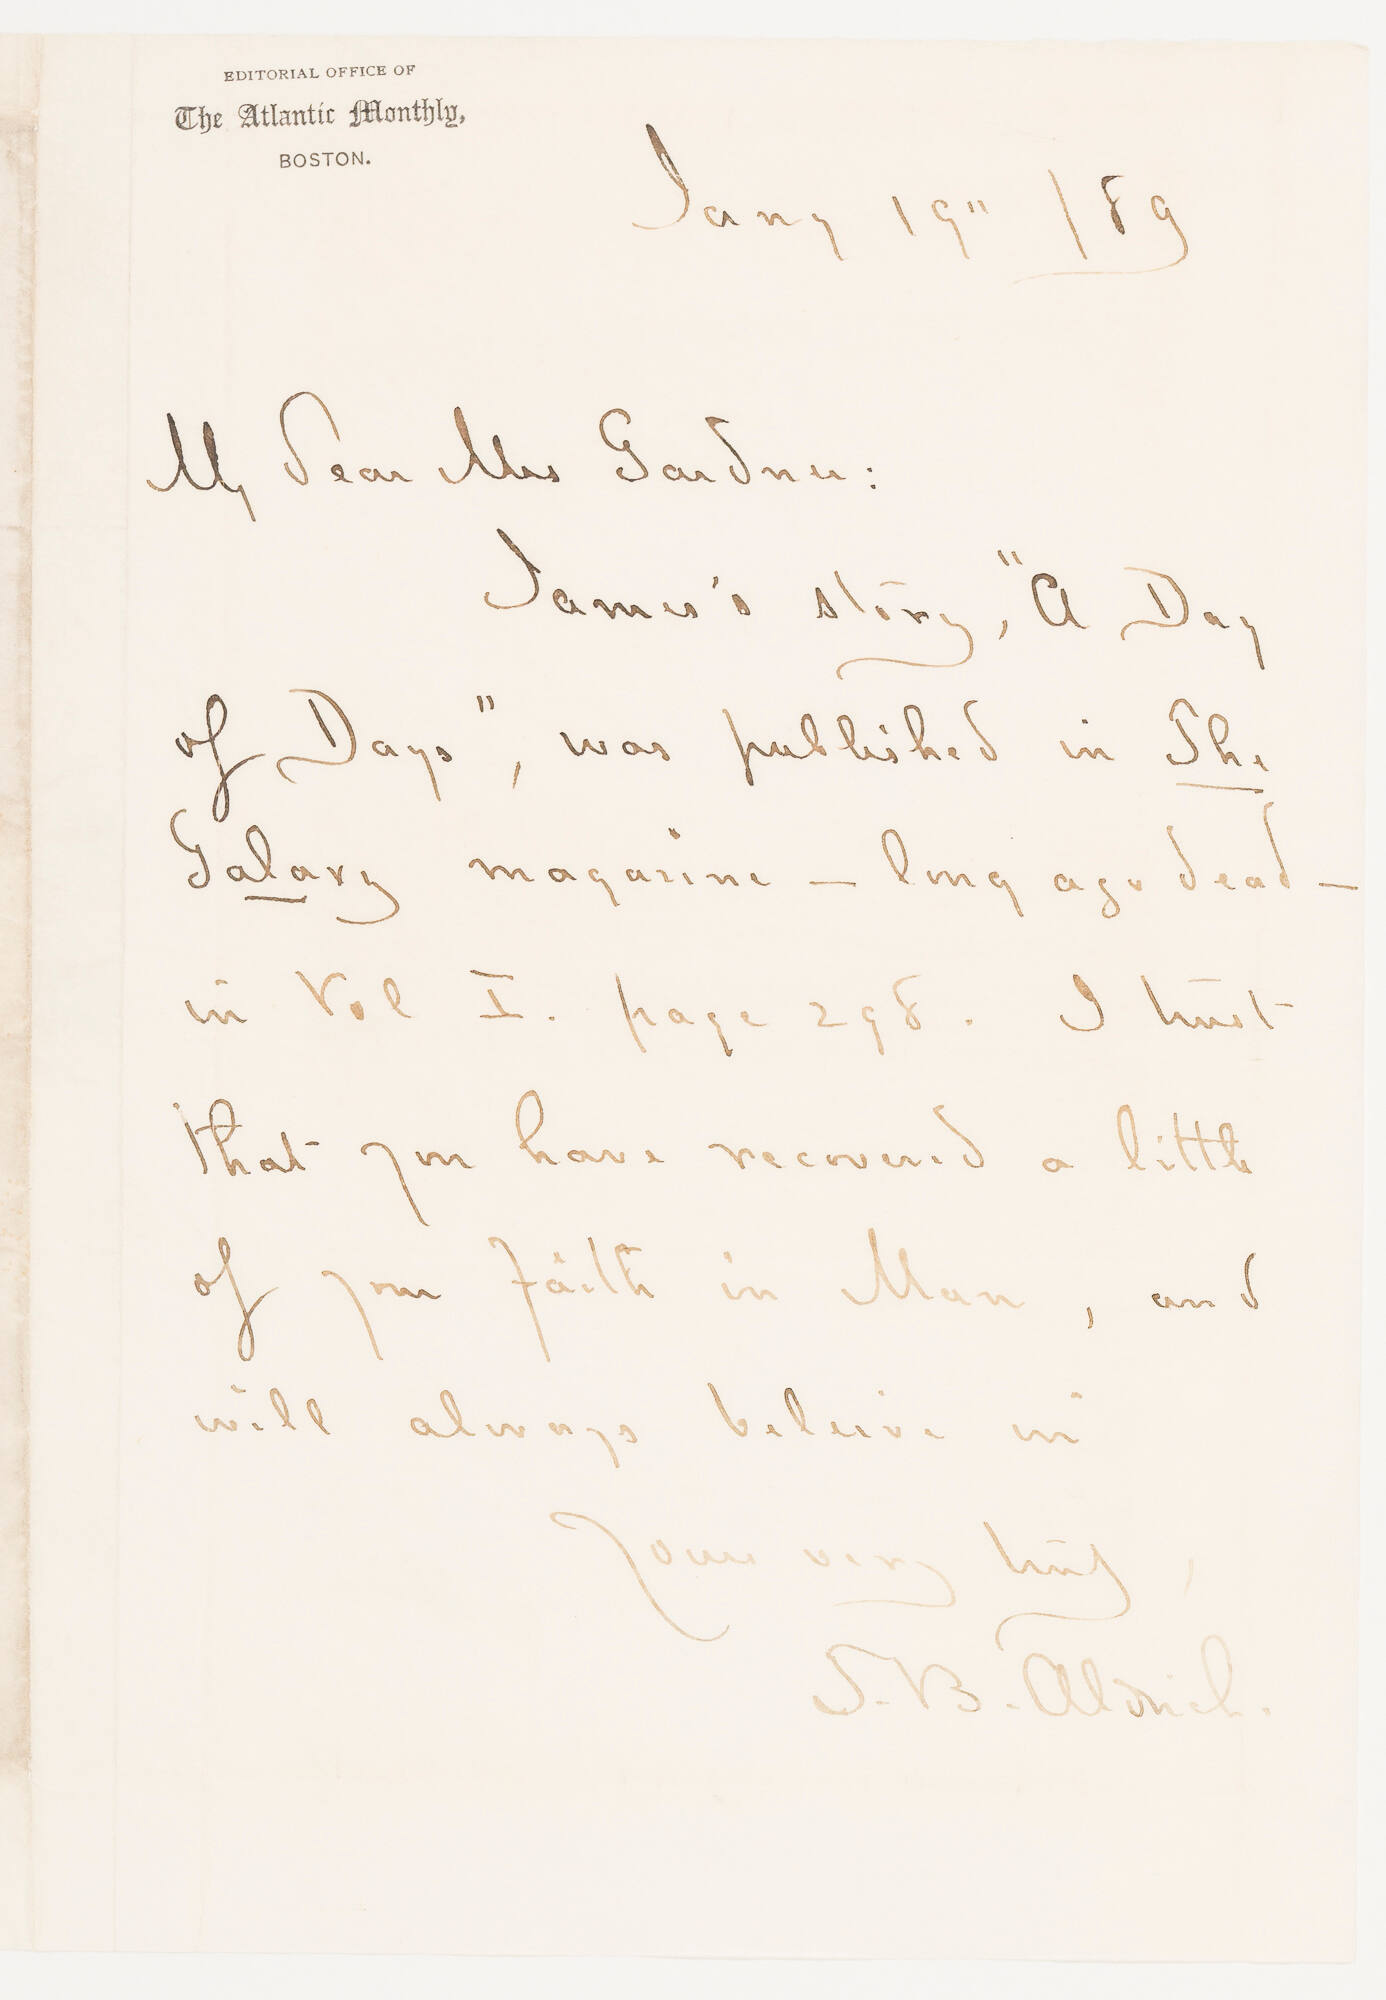 EDITORIAL OFFICE OF
The Atlantic Monthly,
BOSTON.
Jany 19" /89
My dear Mrs Gardner:
James's story, "A Day
of Days", was published in The
Galaxy magazine — long ago dead —
in Vol I. page 298. I trust
that you have recovered a little
of your Faith in Man, and
will always beleive in
Yours very truly,
T. B. Aldrich.